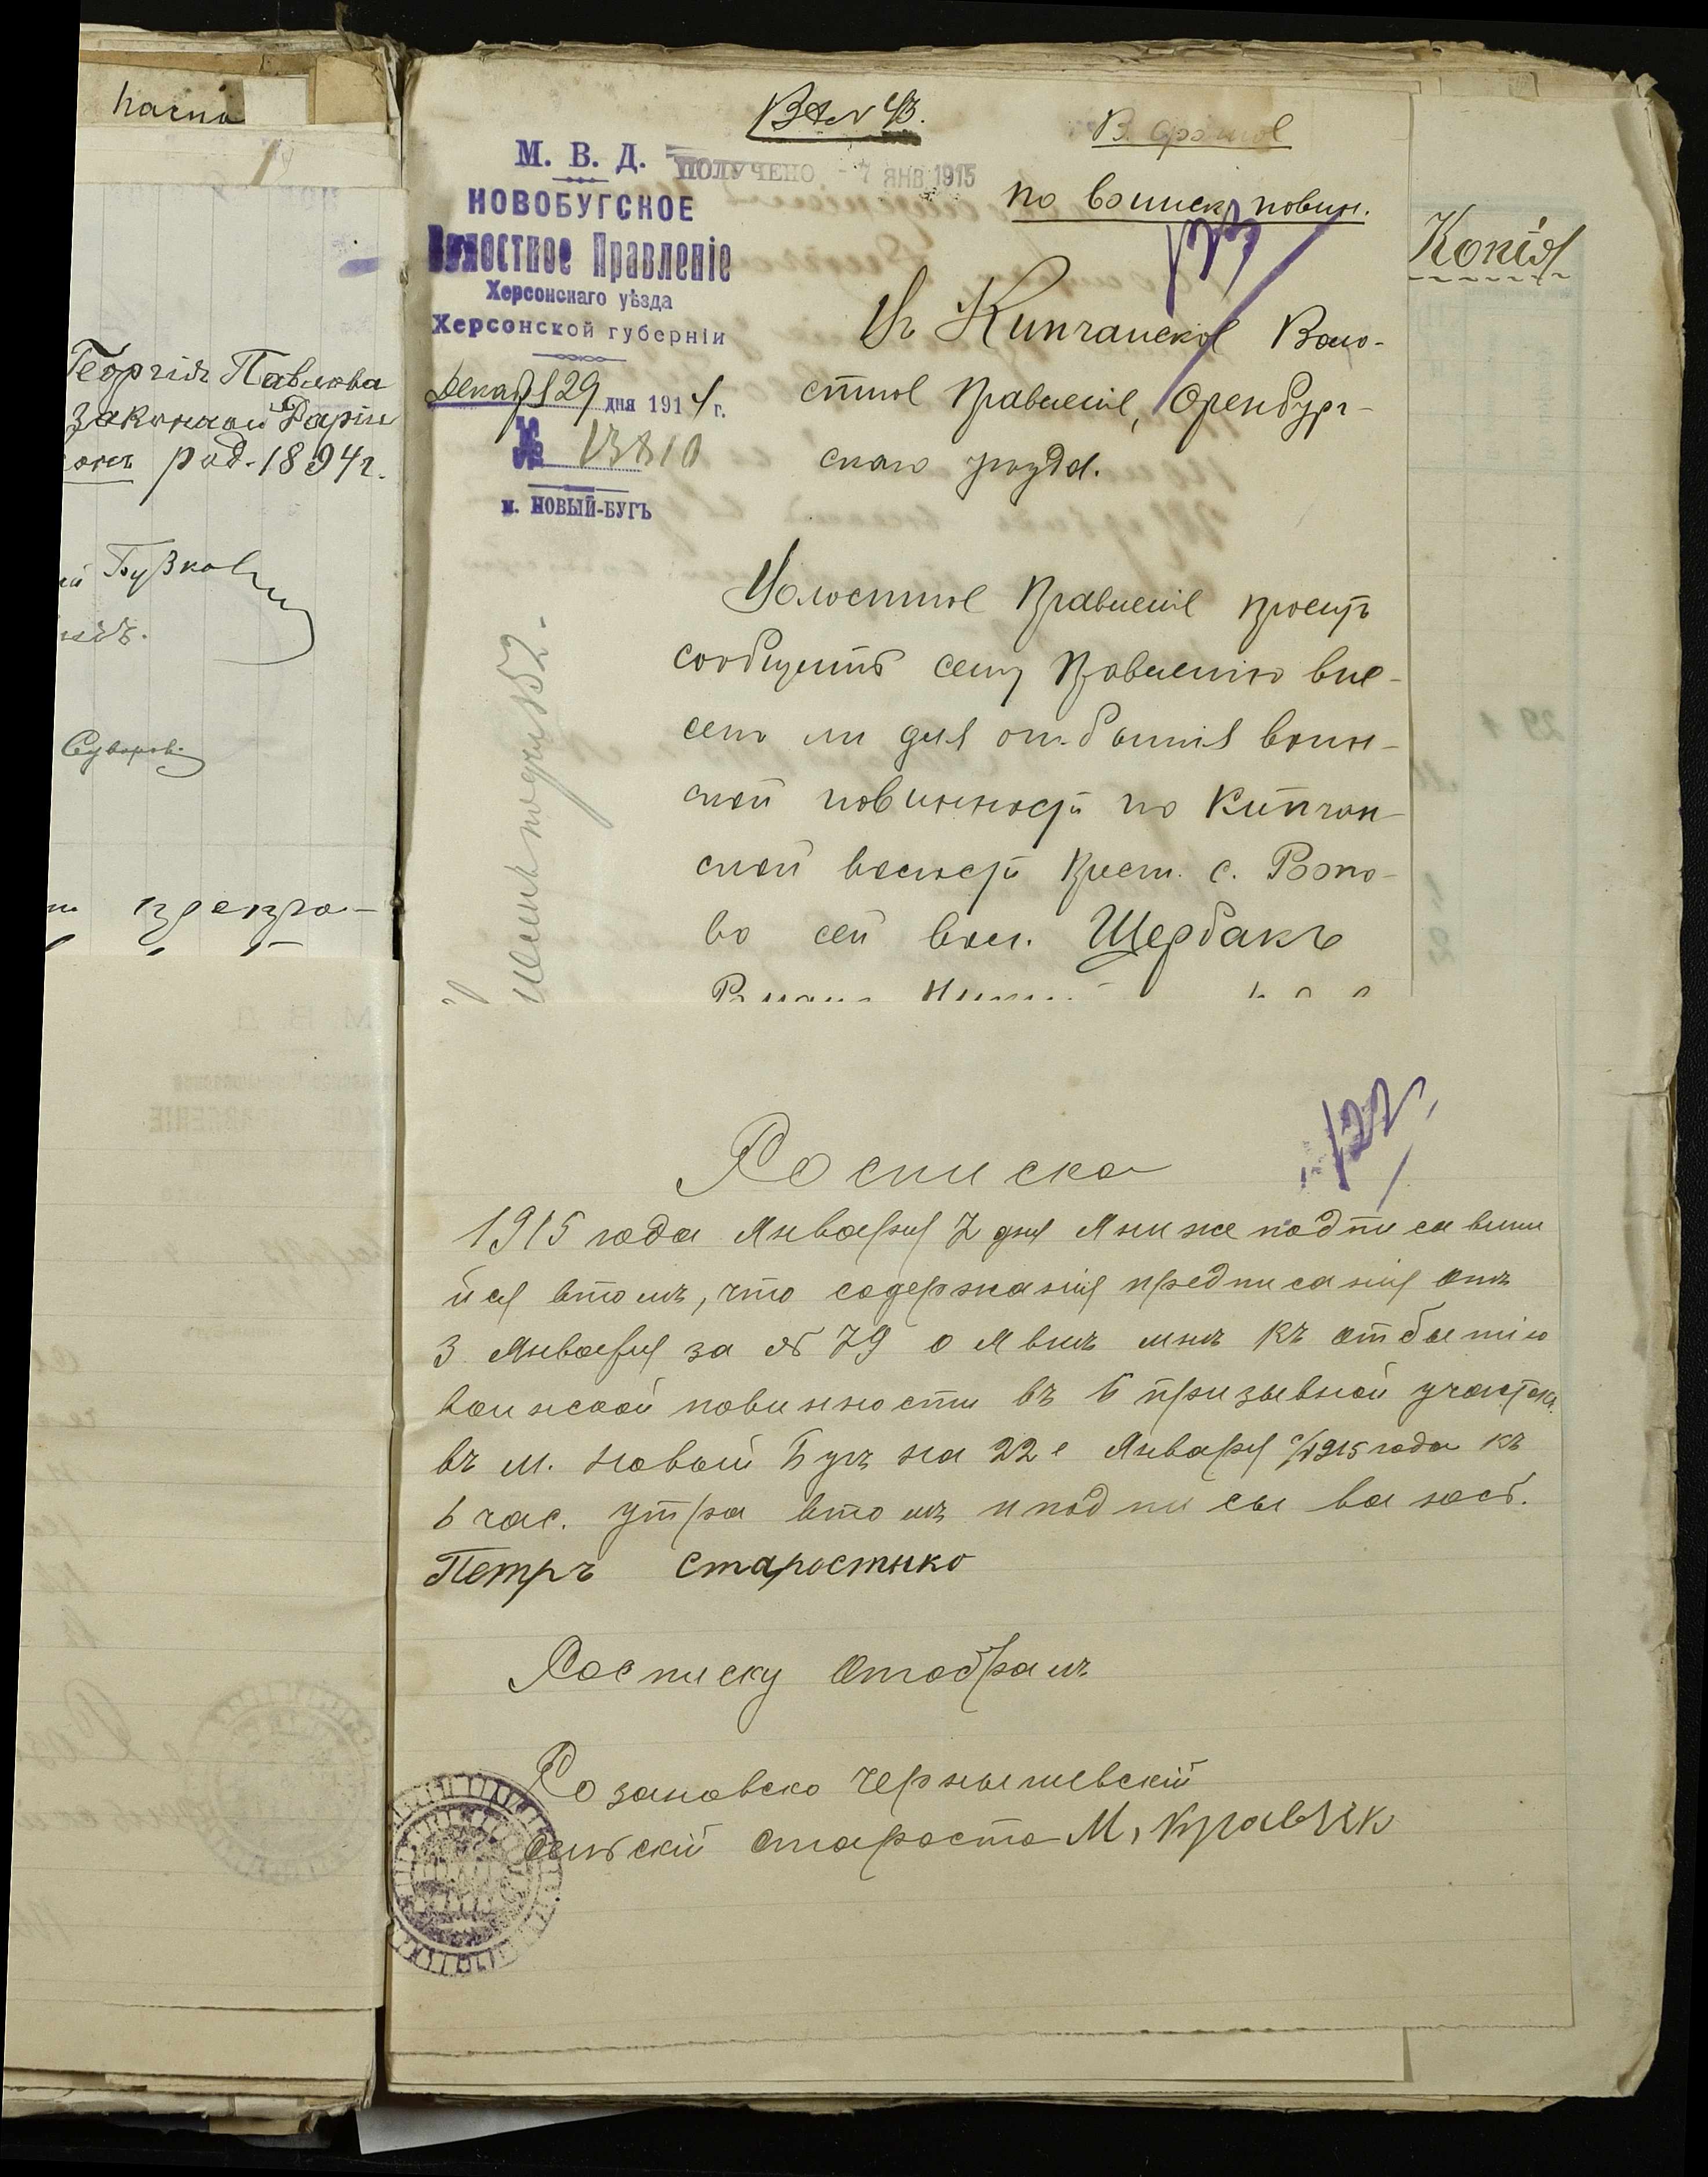 Георгія Павлова
законной Маріи
род. 1894 г.
Бузков
Суворов
М. В. Д.
НОВОБУГСКОЕ
Волостное Правленіе
Херсонскаго уѣзда
Херсонской губерніи
Декаб 29 дня 1914 г.
№ 13810
м. НОВЫЙ-БУГЪ
ПОЛУЧЕНО - 7 ЯНВ 1915
В. срочное
по воинск. повин.
123
Въ Кипчакское Воло-
стное Правленіе, Оренбург-
скаго уѣзда.
Волостное Правленіе проситъ
сообщить сему Правленію вне-
сенъ ли для отбытія воин-
ской повинности по Кипчак-
ской волости крест. с.
во сей вол. Щербакъ
Копія
122
Росписка
1915 года Января 7 дня я ниже подписавши
йся втомъ, что содержанія предписанія отъ
3 Января за № 79 о явкѣ мнѣ къ отбытію
воинской повинности въ 6 призывной участокъ
въ м. Новый Бугъ на 22е Января с/1915 года къ
6 час. утра втомъ и подписываюсь.
Петръ Старостенко
Росписку отобралъ
Розановско Чернышевскій
сельскій староста М. Кравчик